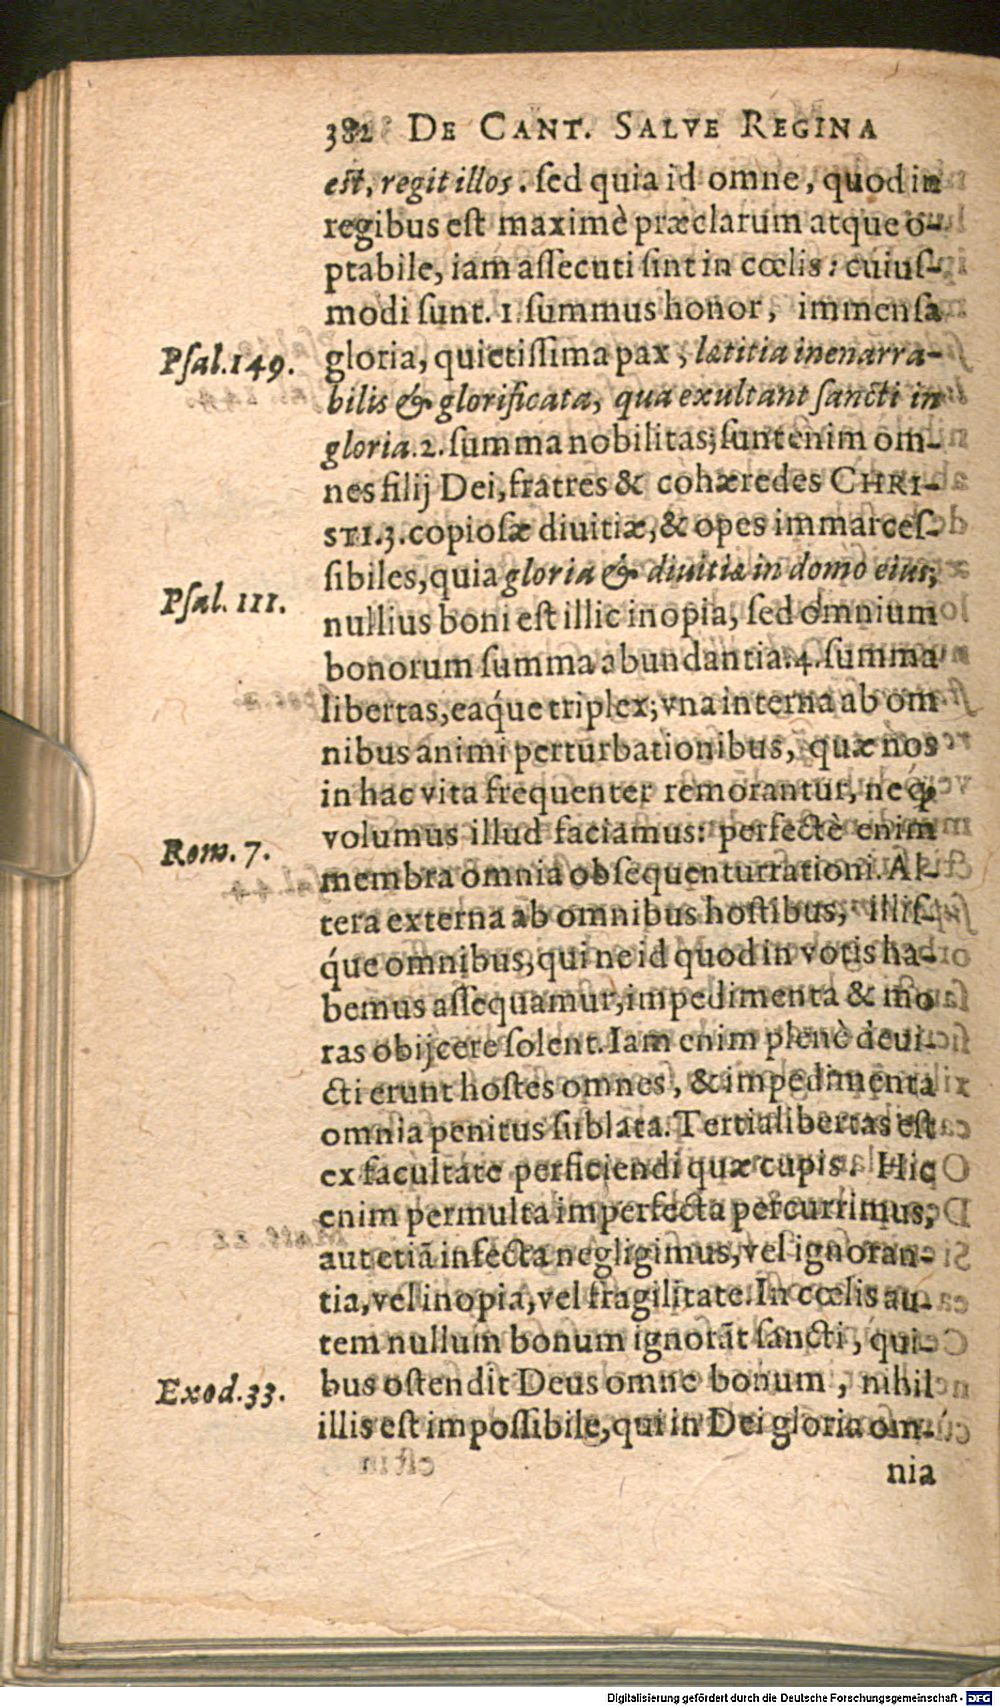 382 DE CANT. SALVE REGINA
est, regit illos. sed quia id omne, quod in
regibus est maximè præclarum atque o-
ptabile, iam assecuti sint in cœlis: cuius-
modi sunt. 1. summus honor, immensa
Psal.149. gloria, quietissima pax, lætitia inenarra-
bilis & glorificata, qua exultant sancti in
gloria. 2. summa nobilitas; sunt enim om-
nes filij Dei, fratres & cohæredes CHRI-
STI. 3. copiosæ diuitiæ, & opes immarces-
sibiles, quia gloria & diuitiæ in domo eius;
Psal. 111. nullius boni est illic inopia, sed omnium
bonorum summa abundantia. 4. summa
libertas, eaq́ue triplex; vna interna ab om
nibus animi perturbationibus, quæ nos
in hac vita frequenter remorantur, ne ꝙ
volumus illud faciamus: perfectè enim
Rom. 7. membra omnia obsequentur rationi. Al-
tera externa ab omnibus hostibus, illis-
q́ue omnibus, qui ne id quod in votis ha-
bemus assequamur, impedimenta & mo
ras obijcere solent. Iam enim plenè deui-
cti erunt hostes omnes, & impedimenta
omnia penitus sublata. Tertia libertas est
ex facultate perficiendi quæ cupis. Hic
enim permulta imperfecta percurrimus,
aut etiã infecta negligimus, vel ignoran-
tia, vel inopia, vel fragilitate. In cœlis au-
tem nullum bonum ignorãt sancti, qui-
Exod.33. bus ostendit Deus omne bonum, nihil
illis est impossibile, qui in Dei gloria om-
nia
Digitalisierung gefördert durch die Deutsche Forschungsgemeinschaft - DFG